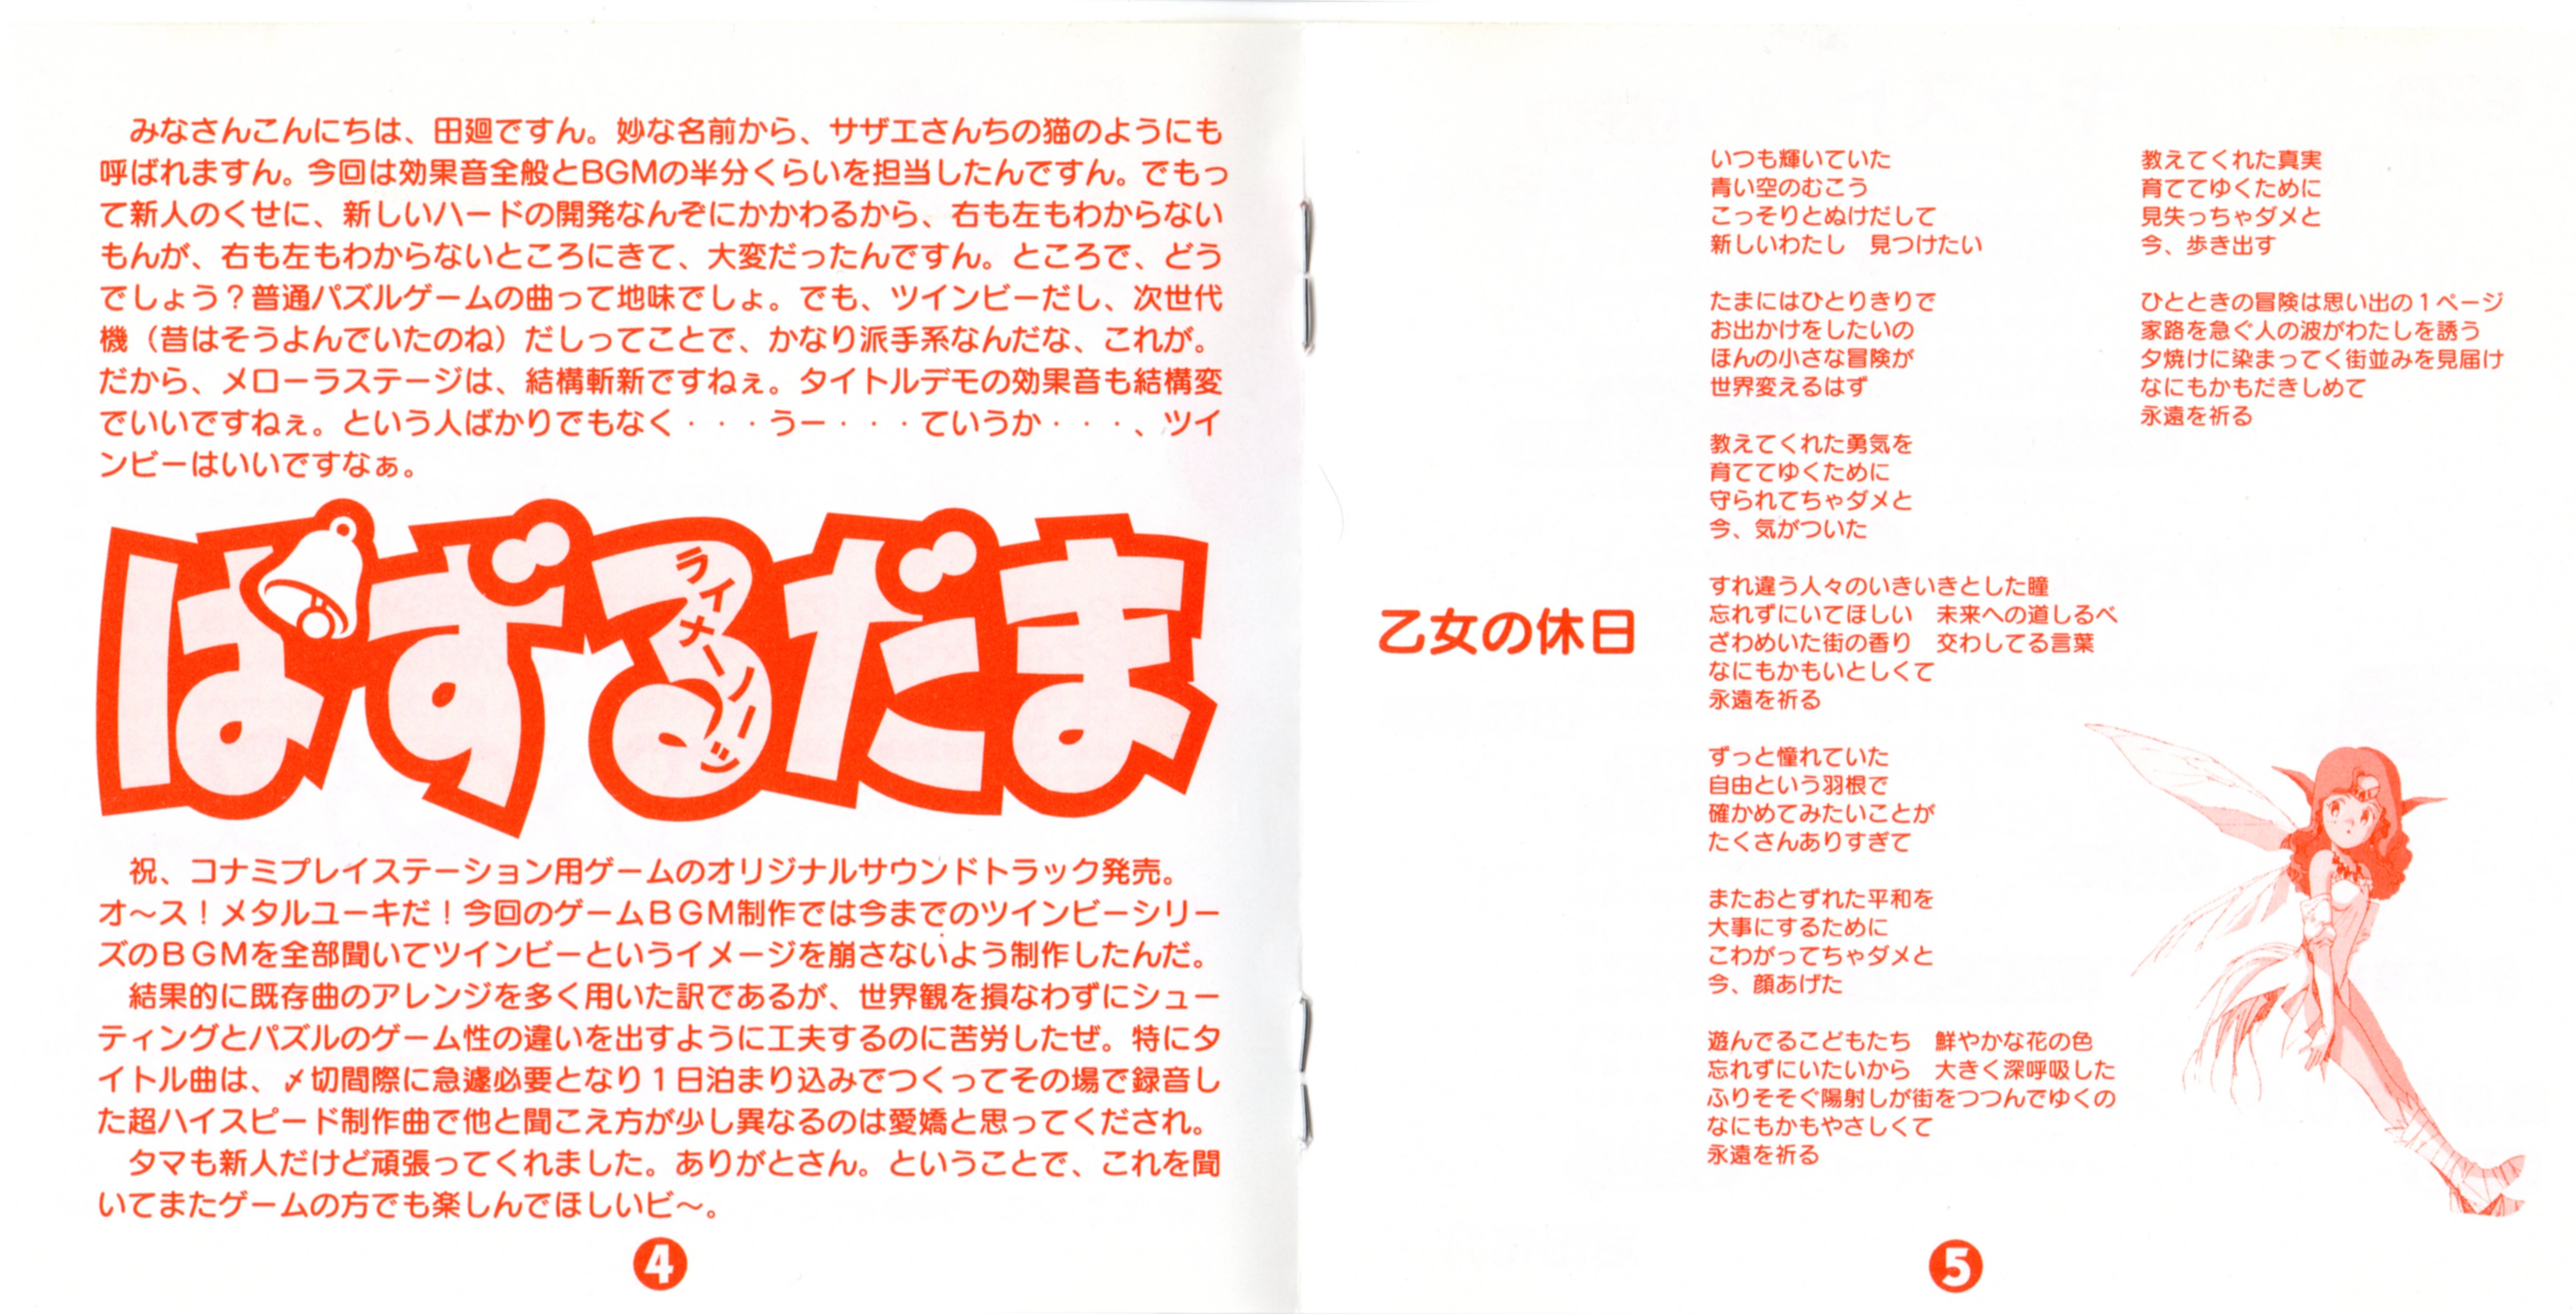 みなさんこんにちは、田廻ですん。妙な名前から、サザエさんちの猫のようにも
呼ばれますん。今回は効果音全般とBGMの半分くらいを担当したんですん。でもっ
て新人のくせに、新しいハードの開発なんぞにかかわるから、右も左もわからない
もんが、右も左もわからないところにきて、大変だったんですん。ところで、どう
でしょう？普通パズルゲームの曲って地味でしょ。でも、ツインビーだし、次世代
機（昔はそうよんでいたのね）だしってことで、かなり派手系なんだな、これが。
だから、メローラステージは、結構斬新ですねぇ。タイトルデモの効果音も結構変
でいいですねぇ。という人ばかりでもなく・・・うー・・・ていうか・・・、ツイ
ンビーはいいですなぁ。
ぱずるだま
ライナーノーツ
祝、コナミプレイステーション用ゲームのオリジナルサウンドトラック発売。
オ〜ス！メタルユーキだ！今回のゲームＢＧＭ制作では今までのツインビーシリー
ズのＢＧＭを全部聞いてツインビーというイメージを崩さないよう制作したんだ。
結果的に既存曲のアレンジを多く用いた訳であるが、世界観を損なわずにシュー
ティングとパズルのゲーム性の違いを出すように工夫するのに苦労したぜ。特にタ
イトル曲は、〆切間際に急遽必要となり１日泊まり込みでつくってその場で録音し
た超ハイスピード制作曲で他と聞こえ方が少し異なるのは愛嬌と思ってくだされ。
タマも新人だけど頑張ってくれました。ありがとさん。ということで、これを聞
いてまたゲームの方でも楽しんでほしいビ〜。
4
乙女の休日
いつも輝いていた
青い空のむこう
こっそりとぬけだして
新しいわたし　見つけたい
たまにはひとりきりで
お出かけをしたいの
ほんの小さな冒険が
世界変えるはず
教えてくれた勇気を
育ててゆくために
守られてちゃダメと
今、気がついた
すれ違う人々のいきいきとした瞳
忘れずにいてほしい　未来への道しるべ
ざわめいた街の香り　交わしてる言葉
なにもかもいとしくて
永遠を祈る
ずっと憧れていた
自由という羽根で
確かめてみたいことが
たくさんありすぎて
またおとずれた平和を
大事にするために
こわがってちゃダメと
今、顔あげた
遊んでるこどもたち　鮮やかな花の色
忘れずにいたいから　大きく深呼吸した
ふりそそぐ陽射しが街をつつんでゆくの
なにもかもやさしくて
永遠を祈る
教えてくれた真実
育ててゆくために
見失っちゃダメと
今、歩き出す
ひとときの冒険は思い出の１ページ
家路を急ぐ人の波がわたしを誘う
夕焼けに染まってく街並みを見届け
なにもかもだきしめて
永遠を祈る
5